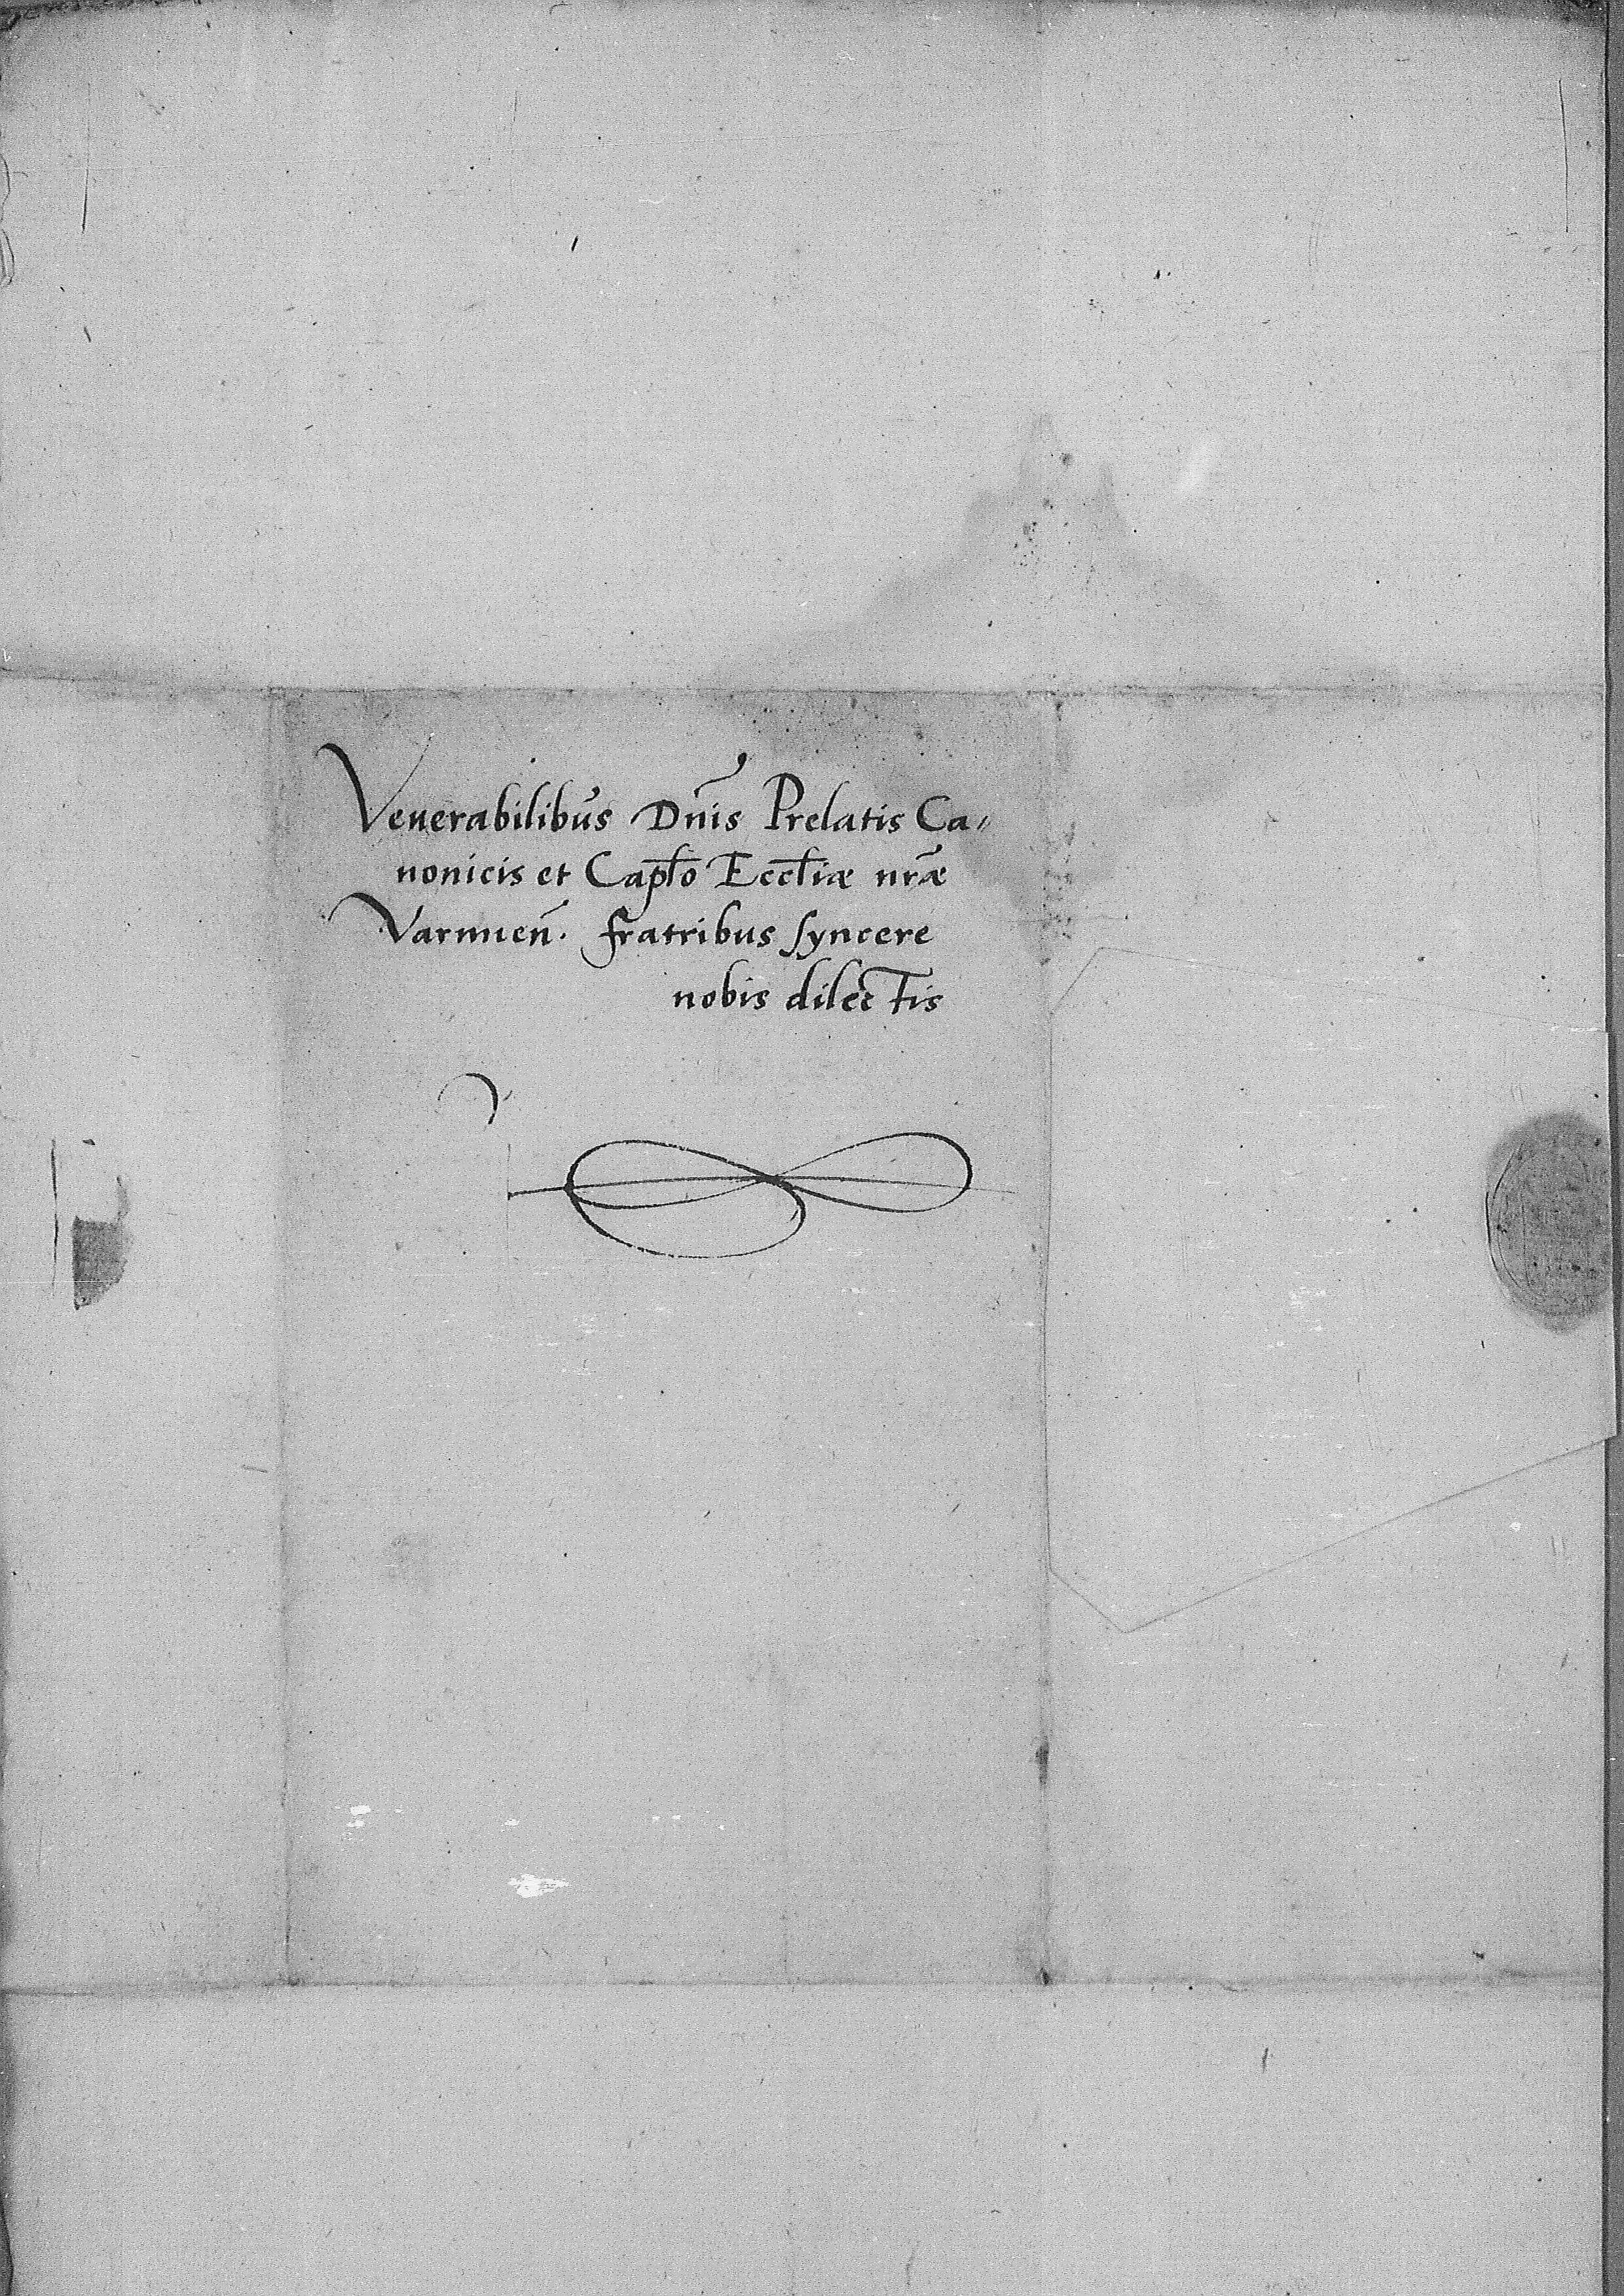 Venerabilibus Dnis Prelatis Ca„
nonicis et Caplo Eccliæ nræ
Varmien̄. fratribus syncere
nobis dilectis